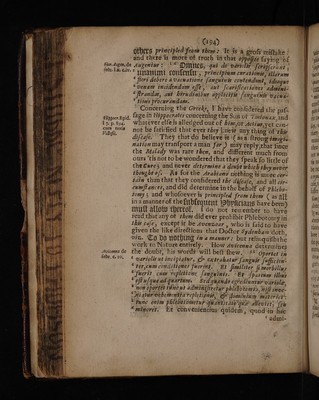 (194)
others principled from them: It is a gross mistake:
and there is more of truth in that opposite saying of
Augenius: Omnes, qui de variolis scripserunt,
unanimi consensu, principium curationis, illarum
fieri debere a vacuatione sanguinis contendunt, idque
venam incidendam esse, aut scarificationes admini-
strandas, aut hirudinibus applicitis sanguinis vacua-
tionem procurandam.
Concerning the Greeks, I have considered the pas-
sage in Hippocrates concerning the Son of and
whatever else is alledged out of him, or Aetius, yet can-
not be satisfied that ever they knew any thing of this
disease. They that do are (if a strong imagi-
nation may transport a man so) may reply, that since
the Malady was rare then, and different much from
ours 'tis not to be wondered that they speak so little of
the Cure, and never determine a doubt which they never
thought of. As for the Arabians nothing is more cer-
tain than that they considered the disease, and all cir-
cumstances, and did determine in the behalf of Phlebo-
tomy; and whosoever is principled from them (as all
in a manner of the subsequent Physicians have been)
must allow thereof. I do not remember to have
read that any of them did ever prohibit Phlebotomy in
this case, except it be Avenzoar, who is said to have
given the like directions that Doctor Sydenham doth,
viz. To do nothing in a manner: but relinquish the
work to Nature merely. How Avicenna determines
the doubt, his words will best shew. Oportet in
variolis ut incipiatur, & extrahatur sanguis sufficien-
ter, cum conditiones fuerint. Et similiter si morbillus
fuerit cum repletione sanguinis. Et spatium illius
est usque ad quartum. Sed quando egrediuntur variolæ,
non oportet tunc ut administretur phlebotomia, nisi inve-
niatur vehementia repletionis, & dominium materiæ:
tunc enim phlebotometur quantitas quæ alleviet, seu
minuerit. Et convenientius quidem, quod in hac
admi-
Hor. Augen. de
febr. l.
Hippoc. Epid.
l. 7.
cum notis
Avicenna de
febr.